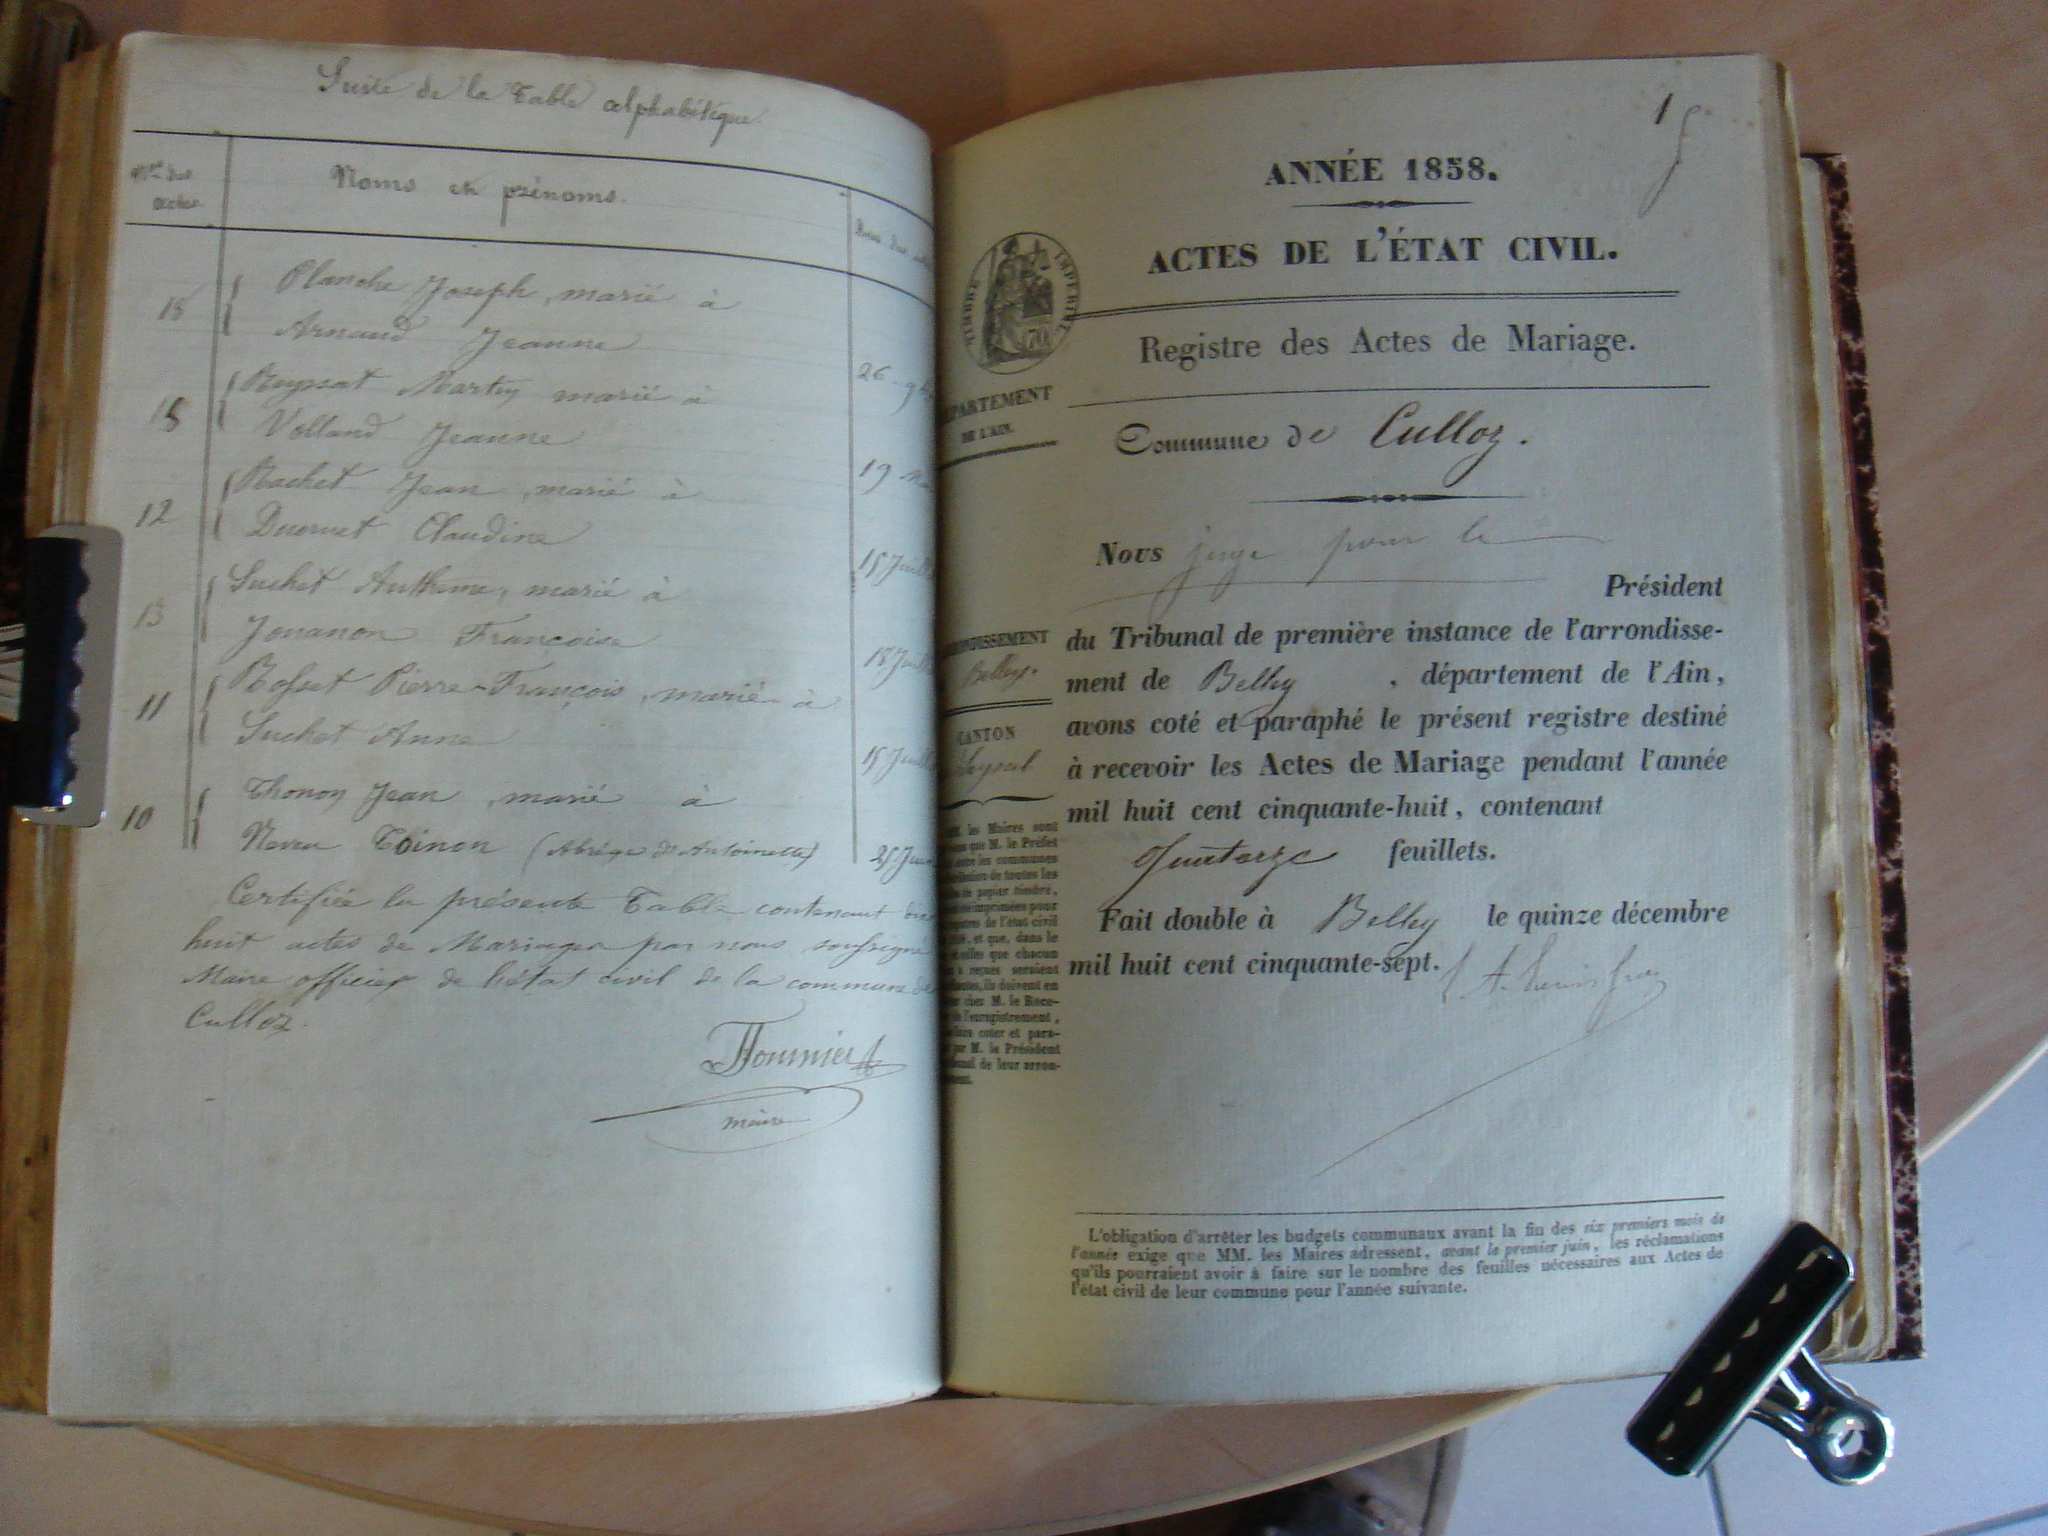 Suite de la Table alphabétique.
Nos des
actes
Noms et prénoms.
Planche Joseph, marié à
18
Arnaud Jeanne
26 9b
Ruyssat Martin marié à
18
Volland Jeanne
19
Rachet Jean, marié à
12
Ducruet Claudine
15 Juill
Suchet Anthème, marié à
13
Jouanon Françoise
18 Juill
Rosset Pierre-François, marié à
11
Suchet Anne
15 Juill
Thonon Jean, marié à
10
Toinon (Abrégé de Antoinette)
25 Jui
Certifiée la présente Table contenant dix
huit actes de Mariages par nous soussigné
Maire officier de l'état civil de la commune de
Culloz.
Fournier
maire
1
ANNÉE 1858.
ACTES DE L'ÉTAT CIVIL.
TIMBRE IMPERIAL
70
Registre des Actes de Mariage.
PARTEMENT
DE L'AIN.
Commune de Culloz.
Nous juge pour le
Président
du Tribunal de première instance de l'arrondisse-
ment de Belley, département de l'Ain,
avons coté et paraphé le présent registre destiné
à recevoir les Actes de Mariage pendant l'année
mil huit cent cinquante-huit, contenant
Quatorze feuillets.
Fait double à Belley le quinze décembre
mil huit cent cinquante-sept.
ONDISSEMENT
Belley.
CANTON
Seyssel
les Maires sont
que M. le Préfet
les communes
de toutes les
de papier timbré,
imprimées pour
de l'état civil
et que, dans le
elles que chacun
reçues seraient
ils doivent en
cher M. le Rece-
de l'enregistrement,
coter et para-
par M. le Président
de leur arron-
L'obligation d'arrêter les budgets communaux avant la fin des six premiers mois de
l'année exige que MM. les Maires adressent, avant le premier juin, les réclamations
qu'ils pourraient avoir à faire sur le nombre des feuilles nécessaires aux Actes de
l'état civil de leur commune pour l'année suivante.